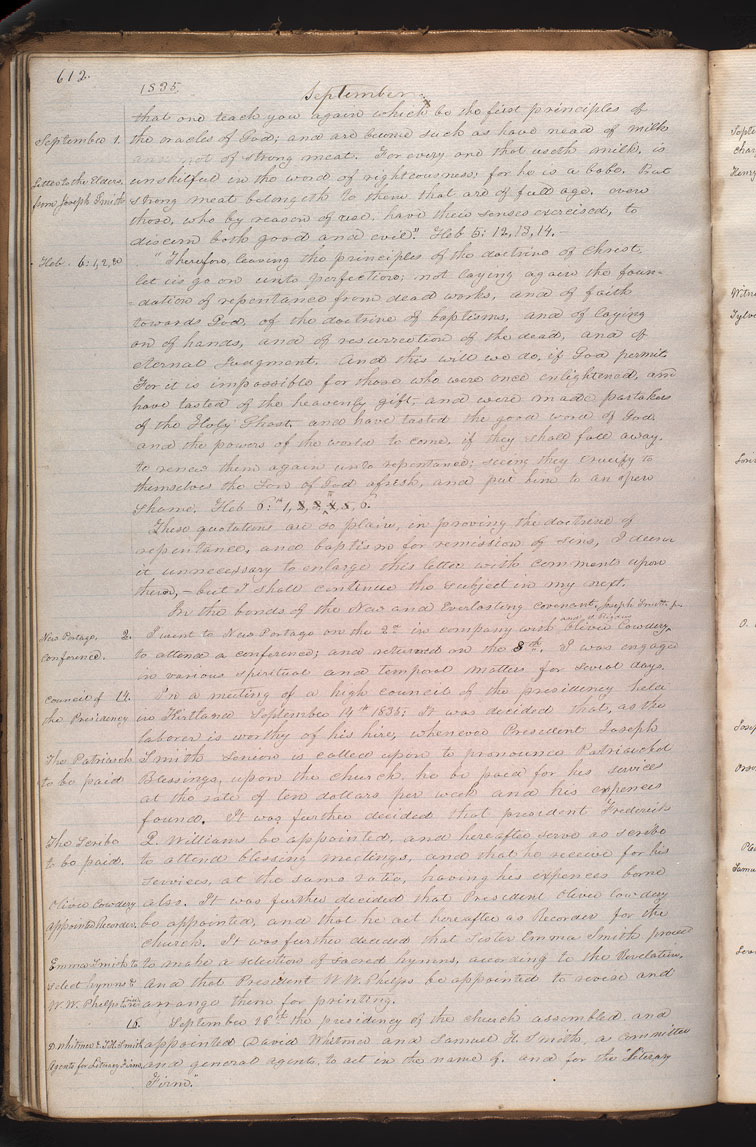 612.
1835.
September.
that one teach you again which be the first principles of
September 1. the oracles of God; and are become such as have need of milk
and not of strong meat. For every one that useth milk, is
Letter to the Elders, unskilful in the word of righteousness; for he is a babe. But
from Joseph Smith strong meat belongeth to them that are of full age, even
those, who by reason of use, have their senses exercised, to
discern both good and evil." Heb 5: 12, 13, 14.—
Heb. 6:1,2, "Therefore, leaving the principles of the doctrine of Christ,
let us go on unto perfection; not laying again the foun-
-dation of repentance from dead works, and of faith
towards God, of the doctrine of baptisms, and of laying
on of hands, and of resurrection of the dead, and of
eternal Judgment. And this will we do, if God permit.
For it is impossible for those who were once enlightened, and
have tasted of the heavenly gift, and were made partakers
of the Holy Ghost, and have tasted the good word of God
and the powers of the world to come, if they shall fall away,
to renew them again unto repentance; seeing they crucify to
themselves the Son of God afresh, and put him to an open
shame. Heb 6: 1, 6.
These quotations are so plain, in proving the doctrine of
repentance, and baptism for remission of sins, I deem
it unnecessary to enlarge this letter with comments upon
them,— but I shall continue the subject in my next.
In the bonds of the New and Everlasting covenant, Joseph Smith jr
New Portage 2. I went to New Portage on the 2nd in company with Oliver Cowdery,
conference. to attend a conference; and returned on the 8th. I was engaged
in various spiritual and temporal matters for several days.
Council of 14. In a meeting of a high council of the presidency held
the Presidency in Kirtland September 14th 1835; It was decided that, as the
laborer is worthy of his hire, whenever President Joseph
The Patriarch Smith Senior is called upon to pronounce Patriarchal
to be paid Blessings, upon the church, he be paid for his services
at the rate of ten dollars per week and his expences
found. It was further decided that president Frederick
The Scribe G. Williams be appointed, and hereafter serve as scribe
to be paid. to attend blessing meetings, and that he receive for his
services, at the same ratio, having his expences borne
Oliver Cowdery also. It was further decided that President Oliver Cowdery
appointed Recorder. be appointed, and that he act hereafter as Recorder for the
church. It was further decided that Sister Emma Smith proceed
Emma Smith to to make a selection of sacred hymns, according to the Revelation,
select hymns & and that President W. W. Phelps be appointed to revise and
W. W. Phelps arrange them for printing.
September 16th the presidency of the church assembled and
D. Whitmer & S. H. Smith appointed David Whitmer and Samuel H. Smith, as committee
Agents for Literary Firm and general agents, to act in the name of, and for the "Literary
Firm."